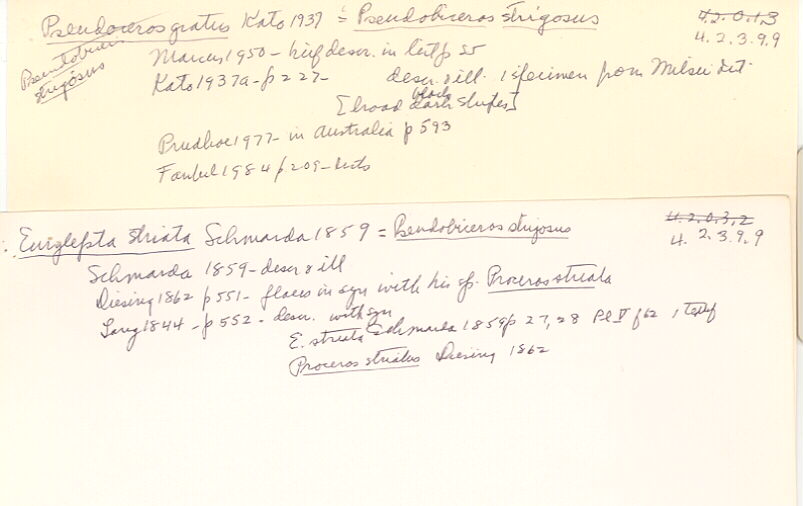 Pseudoceros gratus Kato 1937 = Pseudobiceros strigosus
4.2.0.13
4.2.3.9.9
Pseudobiceros strigosus
Marcus 1950 - brief descr. in list p 55
Kato 1937a - p 227 - descr. & ill. 1 specimen from Mitsui Dist.
[broad dark black stripes]
Prudhoe 1977 - in Australia p 593
Faubel 1984 p 209 - lists
Eurylepta striata Schmarda 1859 = Pseudobiceros strigosus
4.2.0.3.2
4.2.3.9.9
Schmarda 1859 - descr & ill
Diesing 1862 p 551 - places in syn with his sp. Proceros striata
Lang 1844 - p 552 - descr. with syn
E. striata Schmarda 1859 p 27, 28 Pl V f 62, 1 textf
Proceros striatus Diesing 1862